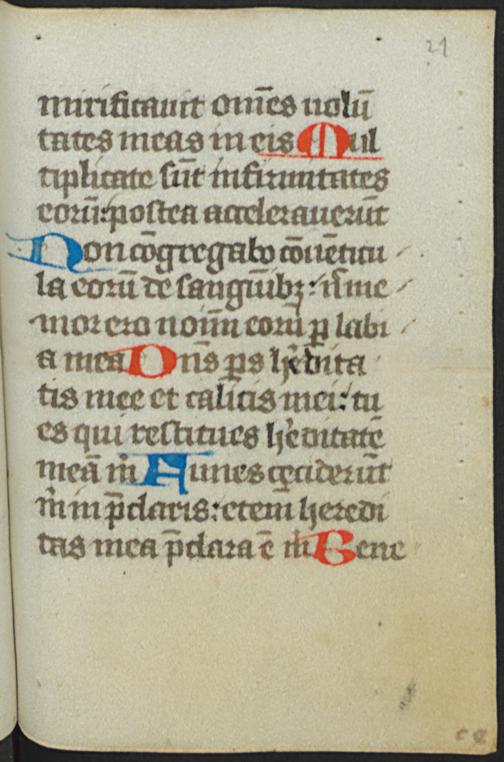 21
mirificauit om̄es uolū
tates meas in eis Mul
tiplicate sūt infirmitates
eorū: postea accelerauerūt
Non cōgregabo cōuēticu
la eorū de sanguīibꝫ: n̄ me
mor ero noīm eorū ꝑ labi
a mea Dn̄s ꝑs h̓edita
tis mee et calicis mei: tu
es qui restitues h̓editatē
meā m̄ Funes ceciderūt
m̄ in p̄claris: etem̄ heredi
tas mea p̄clara ē m̄ Bene